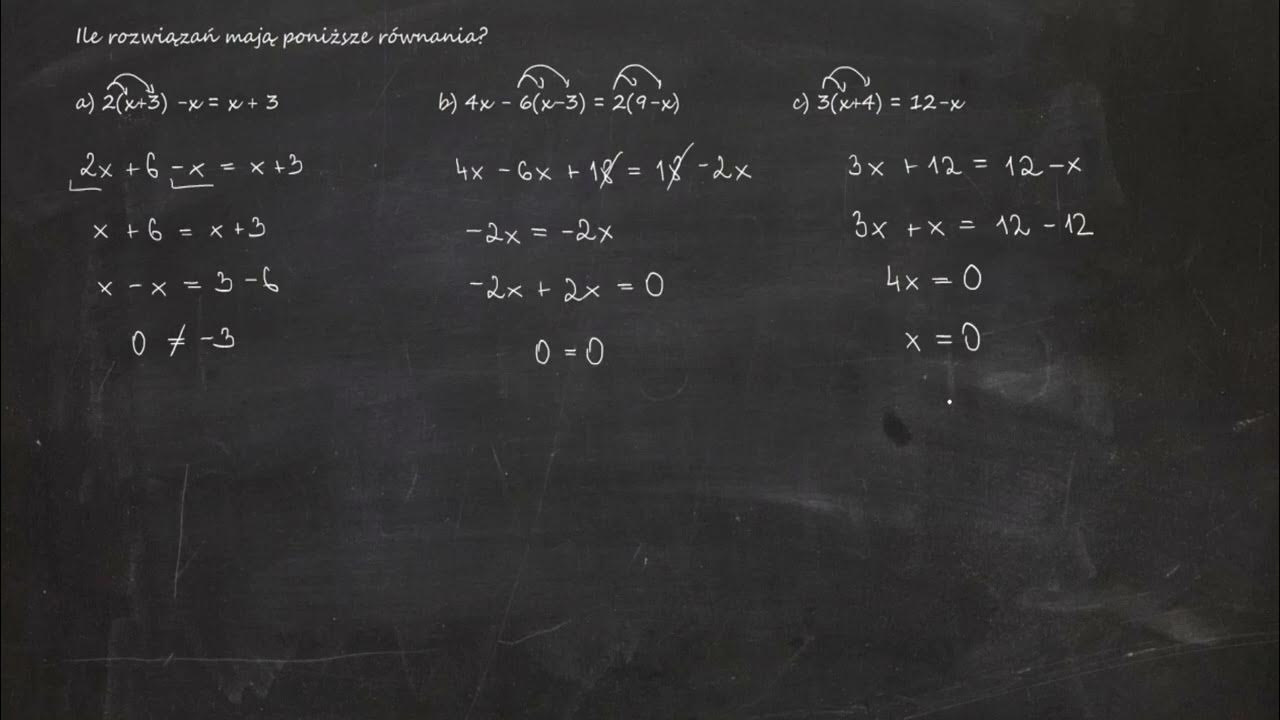 Ile rozwiązań mają poniższe równania?
a) 2(x+3) -x = x + 3
2x + 6 - x = x + 3
x + 6 = x + 3
x - x = 3 - 6
0 ≠ -3
b) 4x - 6(x-3) = 2(9-x)
4x - 6x + 18 = 18 - 2x
-2x = -2x
-2x + 2x = 0
0 = 0
c) 3(x+4) = 12-x
3x + 12 = 12 - x
3x + x = 12 - 12
4x = 0
x = 0